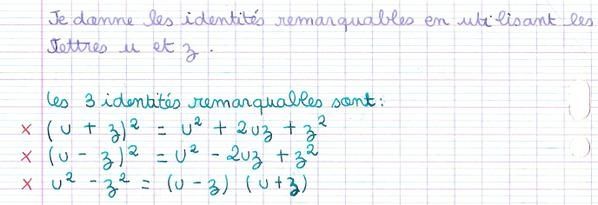 Je donne les identités remarquables en utilisant les
lettres u et z.
Les 3 identités remarquables sont:
× (u + z)² = u² + 2uz + z²
× (u - z)² = u² - 2uz + z²
× u² - z² = (u - z) (u + z)